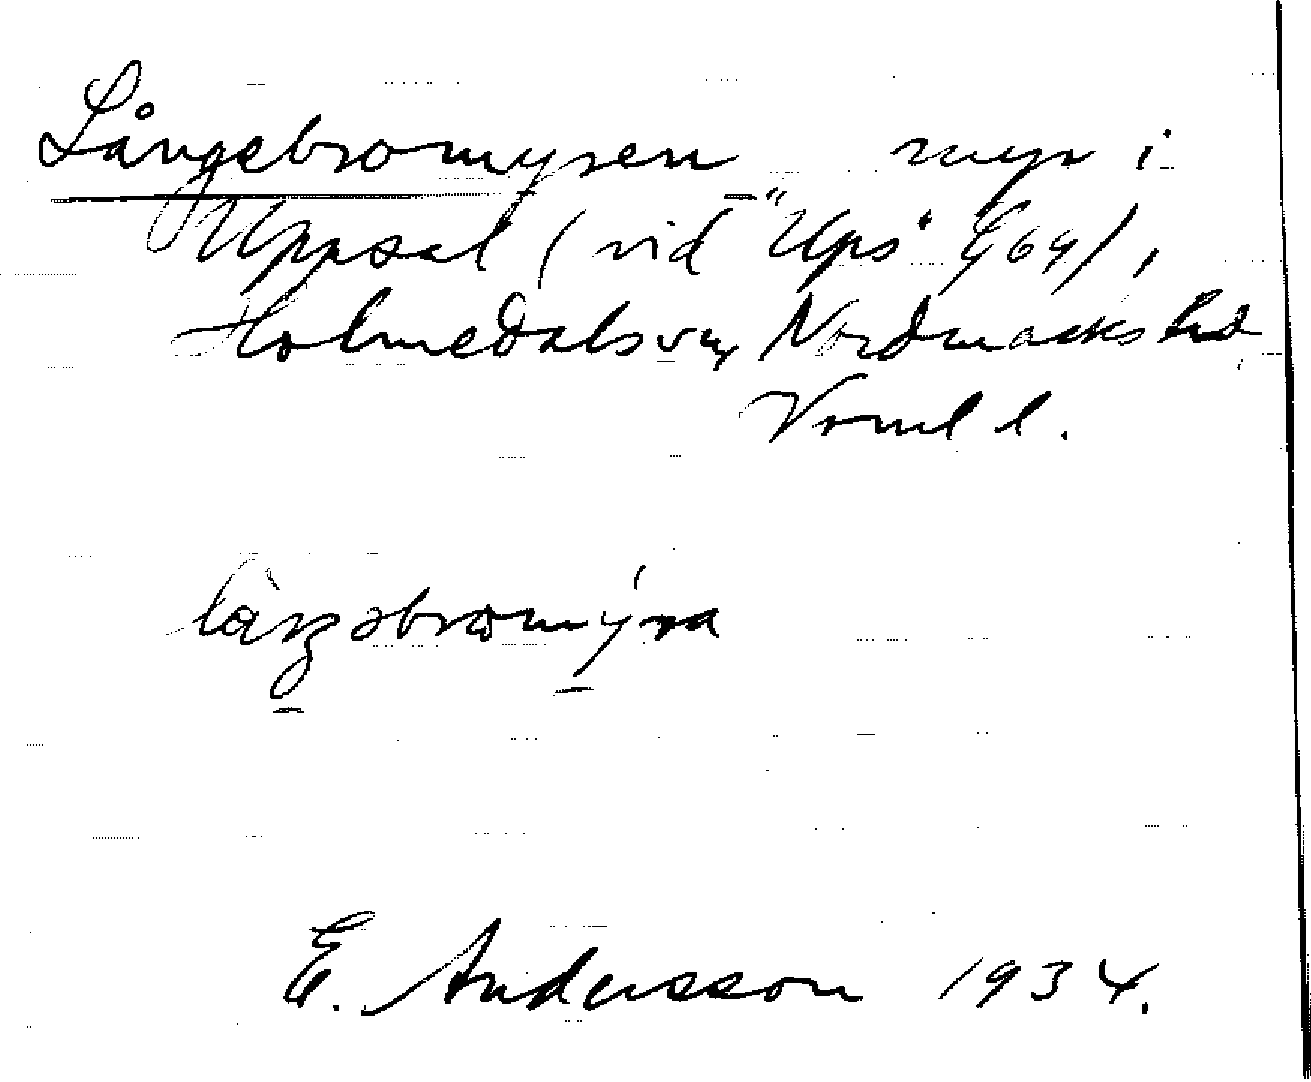 Långebromyren myr i
Uppsal (vid "Ups" G64),
Holmedals sn, Nordmarks hd
Vrml l.
làŋəbromýra
E. Andersson 1934.